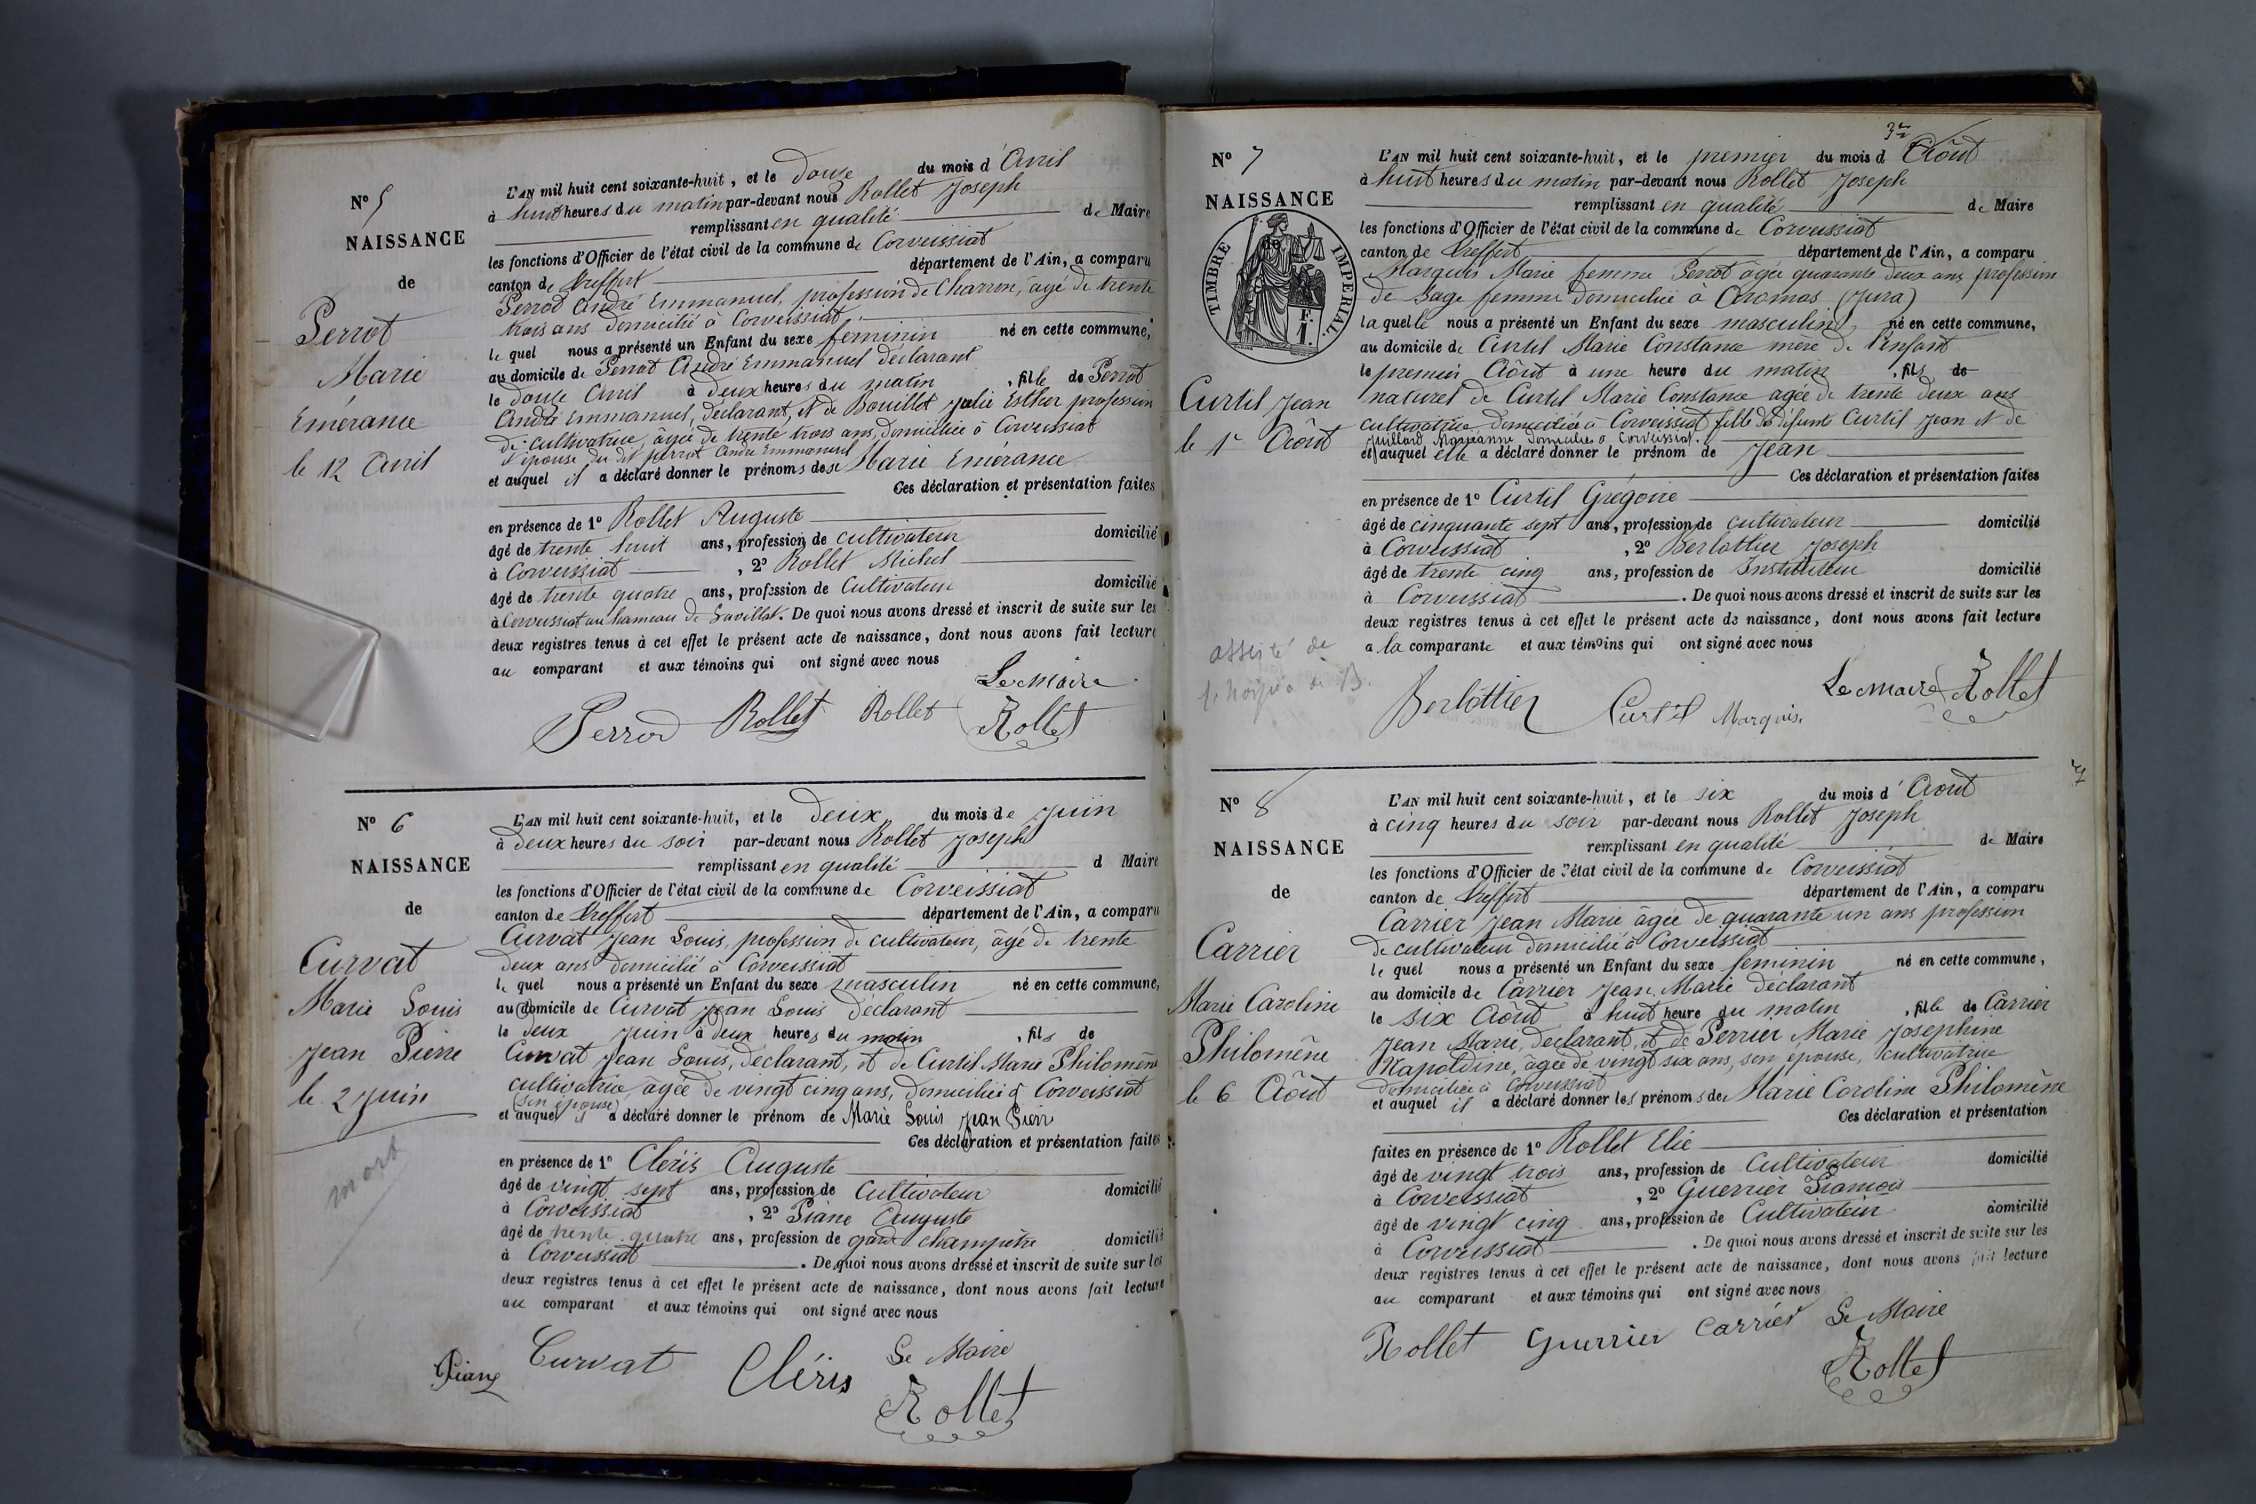 N° 5
NAISSANCE
de
Perrot
Marie
Emérance
le 12 Avril
L'AN mil huit cent soixante-huit, et le douze du mois d'Avril
à huit heures du matin par-devant nous Rollet Joseph
remplissant en qualité de Maire
les fonctions d'Officier de l'état civil de la commune de Corveissiat
canton de Treffort département de l'Ain, a comparu
Perrot André Emmanuel, profession de Charron, âgé de trente
trois ans domicilié à Corveissiat
lequel nous a présenté un Enfant du sexe féminin né en cette commune,
au domicile de Perrot André Emmanuel déclarant
le douze Avril à deux heures du matin, fille de Perrot
André Emmanuel, déclarant, et de Bouillet Julie Esther profession
de cultivatrice, âgée de trente trois ans, domiciliée à Corveissiat
épouse du dit perrot André Emmanuel
et auquel il a déclaré donner le prénoms de Marie Emérance
Ces déclaration et présentation faites
en présence de 1° Rollet Auguste
âgé de trente huit ans, profession de cultivateur domicilié
à Corveissiat, 2° Rollet Michel
âgé de trente quatre ans, profession de Cultivateur domicilié
à Corveissiat au hameau de Lavillat. De quoi nous avons dressé et inscrit de suite sur les
deux registres tenus à cet effet le présent acte de naissance, dont nous avons fait lecture
au comparant et aux témoins qui ont signé avec nous
Le Maire
Perrod Rollet Rollet Rollet
N° 6
NAISSANCE
de
Curvat
Marie Louis
Jean Pierre
le 2 Juin
mort
L'AN mil huit cent soixante-huit, et le deux du mois de Juin
à deux heures du soir par-devant nous Rollet Joseph
remplissant en qualité d Maire
les fonctions d'Officier de l'état civil de la commune de Corveissiat
canton de Treffort département de l'Ain, a comparu
Curvat Jean Louis, profession de cultivateur, âgé de trente
deux ans domicilié à Corveissiat
lequel nous a présenté un Enfant du sexe masculin né en cette commune,
au domicile de Curvat Jean Louis déclarant
le deux Juin à deux heures du matin, fils de
Curvat Jean Louis, déclarant, et de Curtil Marie Philomène
cultivatrice âgée de vingt cinq ans, domiciliée à Corveissiat
(son épouse)
et auquel il a déclaré donner le prénom de Marie Louis Jean Pierre
Ces déclaration et présentation faites
en présence de 1° Cléris Auguste
âgé de vingt sept ans, profession de Cultivateur domicilié
à Corveissiat, 2° Piane Auguste
âgé de trente quatre ans, profession de garde champêtre domicilié
à Corveissiat. De quoi nous avons dressé et inscrit de suite sur les
deux registres tenus à cet effet le présent acte de naissance, dont nous avons fait lecture
au comparant et aux témoins qui ont signé avec nous
Piane Curvat Cléris Le Maire
Rollet
N° 7
NAISSANCE
de
TIMBRE IMPERIAL
F.
1.
Curtil Jean
le 1r Août
assisté de
L'AN mil huit cent soixante-huit, et le premier du mois d Août
à huit heures du matin par-devant nous Rollet Joseph
remplissant en qualité de Maire
les fonctions d'Officier de l'état civil de la commune de Corveissiat
canton de Treffort département de l'Ain, a comparu
Marquis Marie femme Perrot âgée quarante deux ans, profession
de Sage femme domiciliée à Aromas (Jura)
laquelle nous a présenté un Enfant du sexe masculin, né en cette commune,
au domicile de Curtil Marie Constance mère de l'enfant
le premier Août à une heure du matin, fils de
naturel de Curtil Marie Constance âgée de trente deux ans
cultivatrice domiciliée à Corveissiat fille de défunt Curtil Jean et de
Juillard Marianne domiciliés à Corveissiat.
et auquel elle a déclaré donner le prénom de Jean
Ces déclaration et présentation faites
en présence de 1° Curtil Grégoire
âgé de cinquante sept ans, profession de cultivateur domicilié
à Corveissiat, 2° Berlottier Joseph
âgé de trente cinq ans, profession de Instituteur domicilié
à Corveissiat. De quoi nous avons dressé et inscrit de suite sur les
deux registres tenus à cet effet le présent acte de naissance, dont nous avons fait lecture
a la comparante et aux témoins qui ont signé avec nous
Berlottier Curtil Marquis. Le Maire Rollet
N° 8
NAISSANCE
de
Carrier
Marie Caroline
Philomène
le 6 Août
L'AN mil huit cent soixante-huit, et le six du mois d'Août
à cinq heures du soir par-devant nous Rollet Joseph
remplissant en qualité de Maire
les fonctions d'Officier de l'état civil de la commune de Corveissiat
canton de Treffort département de l'Ain, a comparu
Carrier Jean Marie âgée de quarante un ans profession
de cultivateur domicilié à Corveissiat
lequel nous a présenté un Enfant du sexe féminin né en cette commune,
au domicile de Carrier Jean Marie déclarant
le six Août à huit heure du matin, fille de Carrier
Jean Marie, déclarant, et de Perrier Marie Josephine
Napoldine, âgée de vingt six ans, son épouse, cultivatrice
domiciliée à Corveissiat
et auquel il a déclaré donner les prénoms de Marie Caroline Philomène
Ces déclaration et présentation
faites en présence de 1° Rollet Elie
âgé de vingt trois ans, profession de Cultivateur domicilié
à Corveissiat, 2° Guerrier François
âgé de vingt cinq ans, profession de Cultivateur domicilié
à Corveissiat. De quoi nous avons dressé et inscrit de suite sur les
deux registres tenus à cet effet le présent acte de naissance, dont nous avons fait lecture
au comparant et aux témoins qui ont signé avec nous
Rollet Guerrier Carrier Le Maire
Rollet